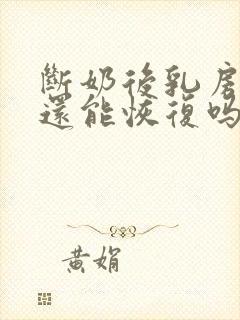 斷奶後乳房
還能恢復吗
黃娟